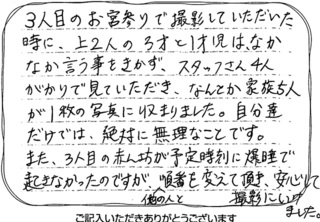 3人目のお宮参りで撮影していただいた
時に、上2人の3才と1才児は、なか
なか言う事をきかず、スタッフさん4人
がかりで見ていただき、なんとか家族5人
が1枚の写真に収まりました。自分達
だけでは、絶対に無理なことです。
また、3人目の赤ん坊が予定時刻に爆睡で
起きなかったのですが、順番を変えて頂き、安心して
他の人と
撮影にいけ
ました。
ご記入いただきありがとうございます